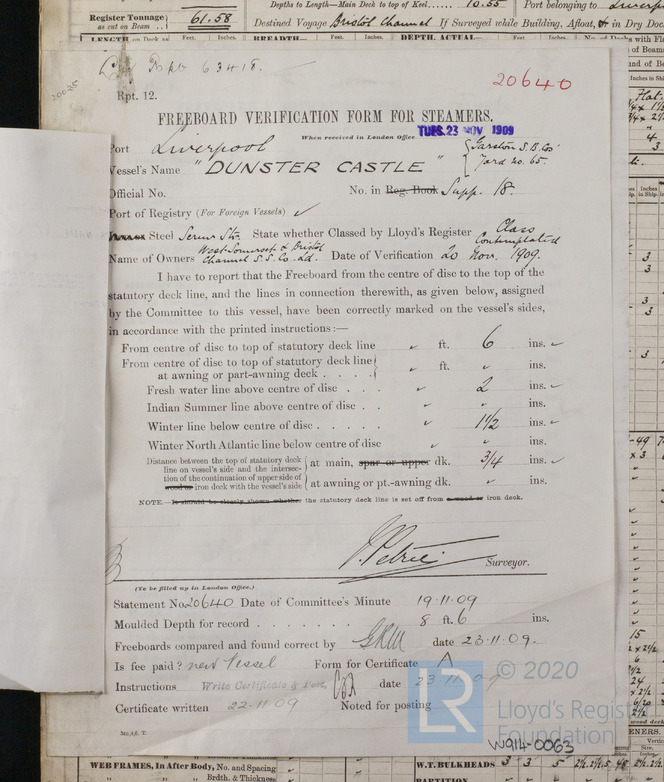 Depths to Length—Main Deck to top of Keel..... 10.55 Port belonging to
Register Tonnage 61.58
as cut on Beam
Destined Voyage Bristol Channel If Surveyed while Building, Afloat, or in Dry Doc
LENGTH on Deck as Feet. Inches. BREADTH— Feet. Inches. DEPTH, ACTUAL— Feet. Inches.
63418.
20640
20025
Rpt. 12.
FREEBOARD VERIFICATION FORM FOR STEAMERS.
When received in London Office TUES. 23 NOV 1909
Port Liverpool
Vessel's Name "DUNSTER CASTLE" Garston S.B. Co's Yard no. 65.
Official No. No. in Reg. Book Supp. 18.
Port of Registry (For Foreign Vessels) ✓
Steel Screw Str. State whether Classed by Lloyd's Register Class Contemplated
Name of Owners West Somerset & Bristol Channel S.S. Co. Ld. Date of Verification 20 Nov. 1909.
I have to report that the Freeboard from the centre of disc to the top of the
statutory deck line, and the lines in connection therewith, as given below, assigned
by the Committee to this vessel, have been correctly marked on the vessel's sides,
in accordance with the printed instructions:—
From centre of disc to top of statutory deck line ft. 6 ins.
From centre of disc to top of statutory deck line
at awning or part-awning deck . . . . ft. ins.
Fresh water line above centre of disc . . . 2 ins.
Indian Summer line above centre of disc . . ins.
Winter line below centre of disc . . . . . 1½ ins.
Winter North Atlantic line below centre of disc ins.
Distance between the top of statutory deck
line on vessel's side and the intersec-
tion of the continuation of upper side of
wood or iron deck with the vessel's side
at main, spar or upper dk. 3/4 ins.
at awning or pt.-awning dk. ins.
NOTE.—It should be clearly shown whether the statutory deck line is set off from a wood or iron deck.
J. Petrie Surveyor.
(To be filled up in London Office.)
Statement No. 20640 Date of Committee's Minute 19·11·09
Moulded Depth for record . . . . . . . . 8 ft. 6 ins.
Freeboards compared and found correct by date 23·11·09.
Is fee paid? new Vessel Form for Certificate A
Instructions Write Certificate & Post. date 23·11·09
Certificate written 22·11·09 Noted for posting
LR
© 2020
Lloyd's Regist
Foundation
W914-0063
WEB FRAMES, In After Body, No. and Spacing
Brdth. & Thickness
W.T. BULKHEADS 3 3 5